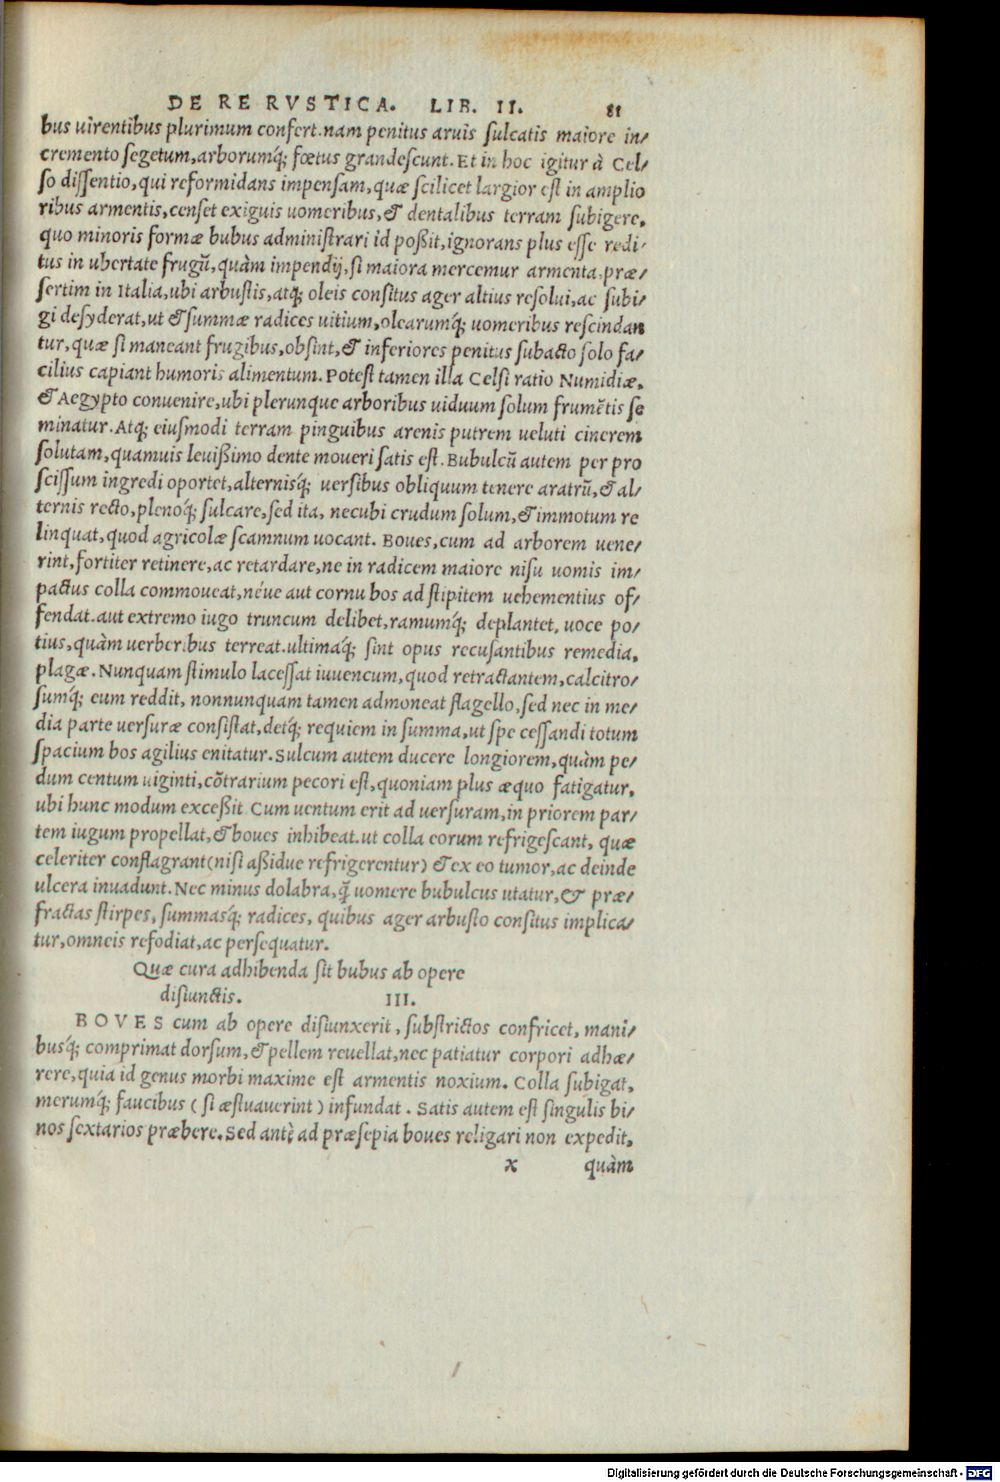 DE RE RVSTICA. LIB. II. 81
bus uirentibus plurimum confert. nam penitus aruis sulcatis maiore in/
cremento segetum, arborumq́; fœtus grandescunt. Et in hoc igitur à Cel/
so dissentio, qui reformidans impensam, quæ scilicet largior est in amplio
ribus armentis, censet exiguis uomeribus, & dentalibus terram subigere,
quo minoris formæ bubus administrari id poßit, ignorans plus esse redi/
tus in ubertate frugũ, quàm impendij, si maiora mercemur armenta, præ/
sertim in Italia, ubi arbustis, atq; oleis consitus ager altius resolui, ac subi/
gi desyderat, ut & summæ radices uitium, olearumq́; uomeribus rescindan
tur, quæ si maneant frugibus, obsint, & inferiores penitus subacto solo fa/
cilius capiant humoris alimentum. Potest tamen illa Celsi ratio Numidiæ,
& Aegypto conuenire, ubi plerunque arboribus uiduum solum frumẽtis se
minatur. Atq; eiusmodi terram pinguibus arenis putrem ueluti cinerem
solutam, quamuis leuißimo dente moueri satis est. Bubulcũ autem per pro
scissum ingredi oportet, alternisq́; uersibus obliquum tenere aratrũ, & al/
ternis recto, plenoq́; sulcare, sed ita, necubi crudum solum, & immotum re
linquat, quod agricolæ scamnum uocant. Boues, cum ad arborem uene/
rint, fortiter retinere, ac retardare, ne in radicem maiore nisu uomis im/
pactus colla commoueat, néue aut cornu bos ad stipitem uehementius of/
fendat. aut extremo iugo truncum delibet, ramumq́; deplantet, uoce po/
tius, quàm uerberibus terreat. ultimaq́; sint opus recusantibus remedia,
plagæ. Nunquam stimulo lacessat iuuencum, quod retractantem, calcitro/
sumq́; eum reddit, nonnunquam tamen admoneat flagello, sed nec in me/
dia parte uersuræ consistat, detq́; requiem in summa, ut spe cessandi totum
spacium bos agilius enitatur. Sulcum autem ducere longiorem, quàm pe/
dum centum uiginti, cõtrarium pecori est, quoniam plus æquo fatigatur,
ubi hunc modum exceßit Cum uentum erit ad uersuram, in priorem par/
tem iugum propellat, & boues inhibeat. ut colla eorum refrigescant, quæ
celeriter conflagrant (nisi aßidue refrigerentur) & ex eo tumor, ac deinde
ulcera inuadunt. Nec minus dolabra, q̃ uomere bubulcus utatur, & præ/
fractas stirpes, summasq́; radices, quibus ager arbusto consitus implica/
tur, omneis refodiat, ac persequatur.
Quæ cura adhibenda sit bubus ab opere
disiunctis. III.
BOVES cum ab opere disiunxerit, substrictos confricet, mani/
busq́; comprimat dorsum, & pellem reuellat, nec patiatur corpori adhæ/
rere, quia id genus morbi maxime est armentis noxium. Colla subigat,
merumq́; faucibus (si æstuauerint) infundat. Satis autem est singulis bi/
nos sextarios præbere. Sed antè ad præsepia boues religari non expedit,
x quàm
Digitalisierung gefördert durch die Deutsche Forschungsgemeinschaft - DFG